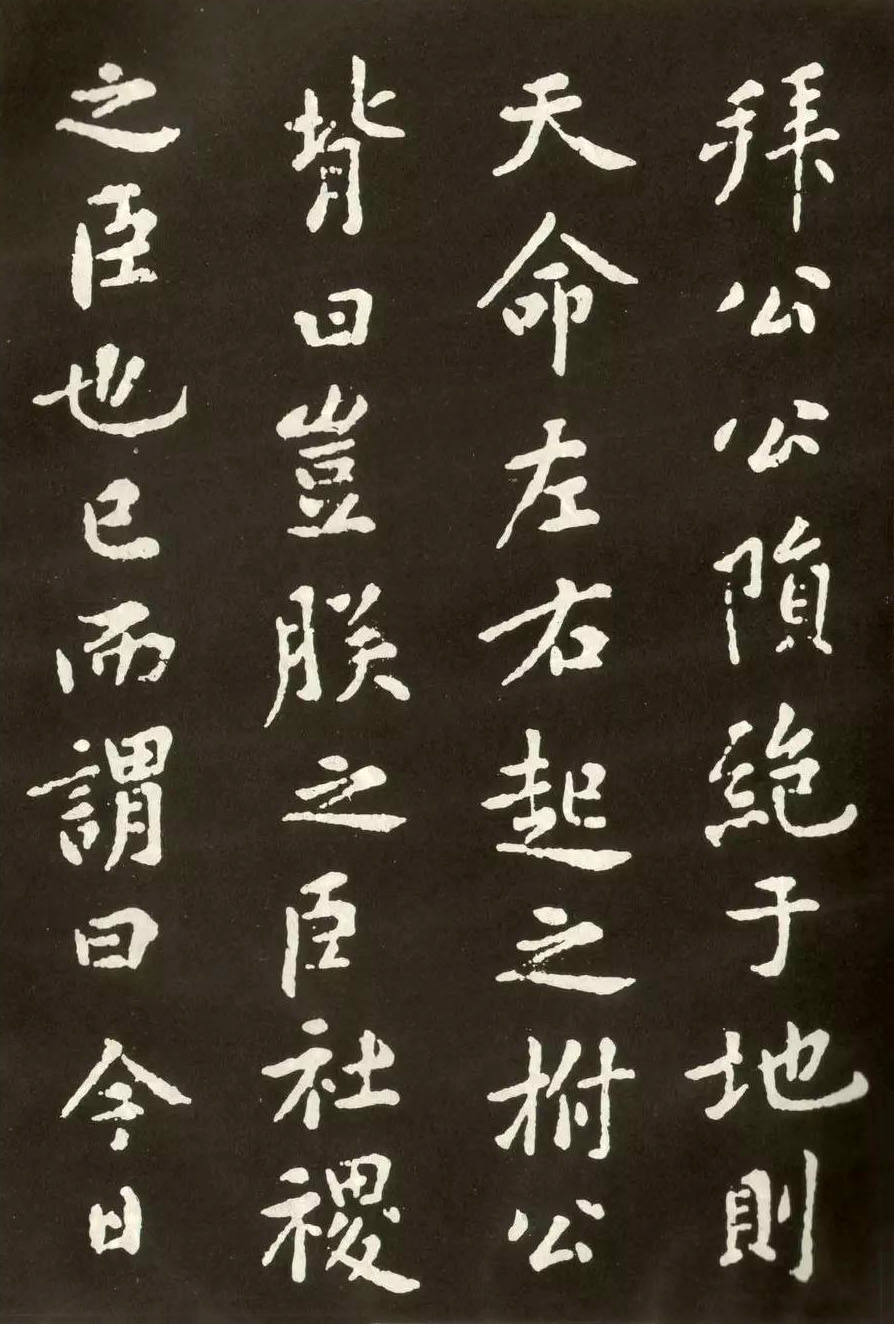 拜公公隕絶于地則
天命左右起之拊公
背曰豈朕之臣社稷
之臣也已而謂曰今日